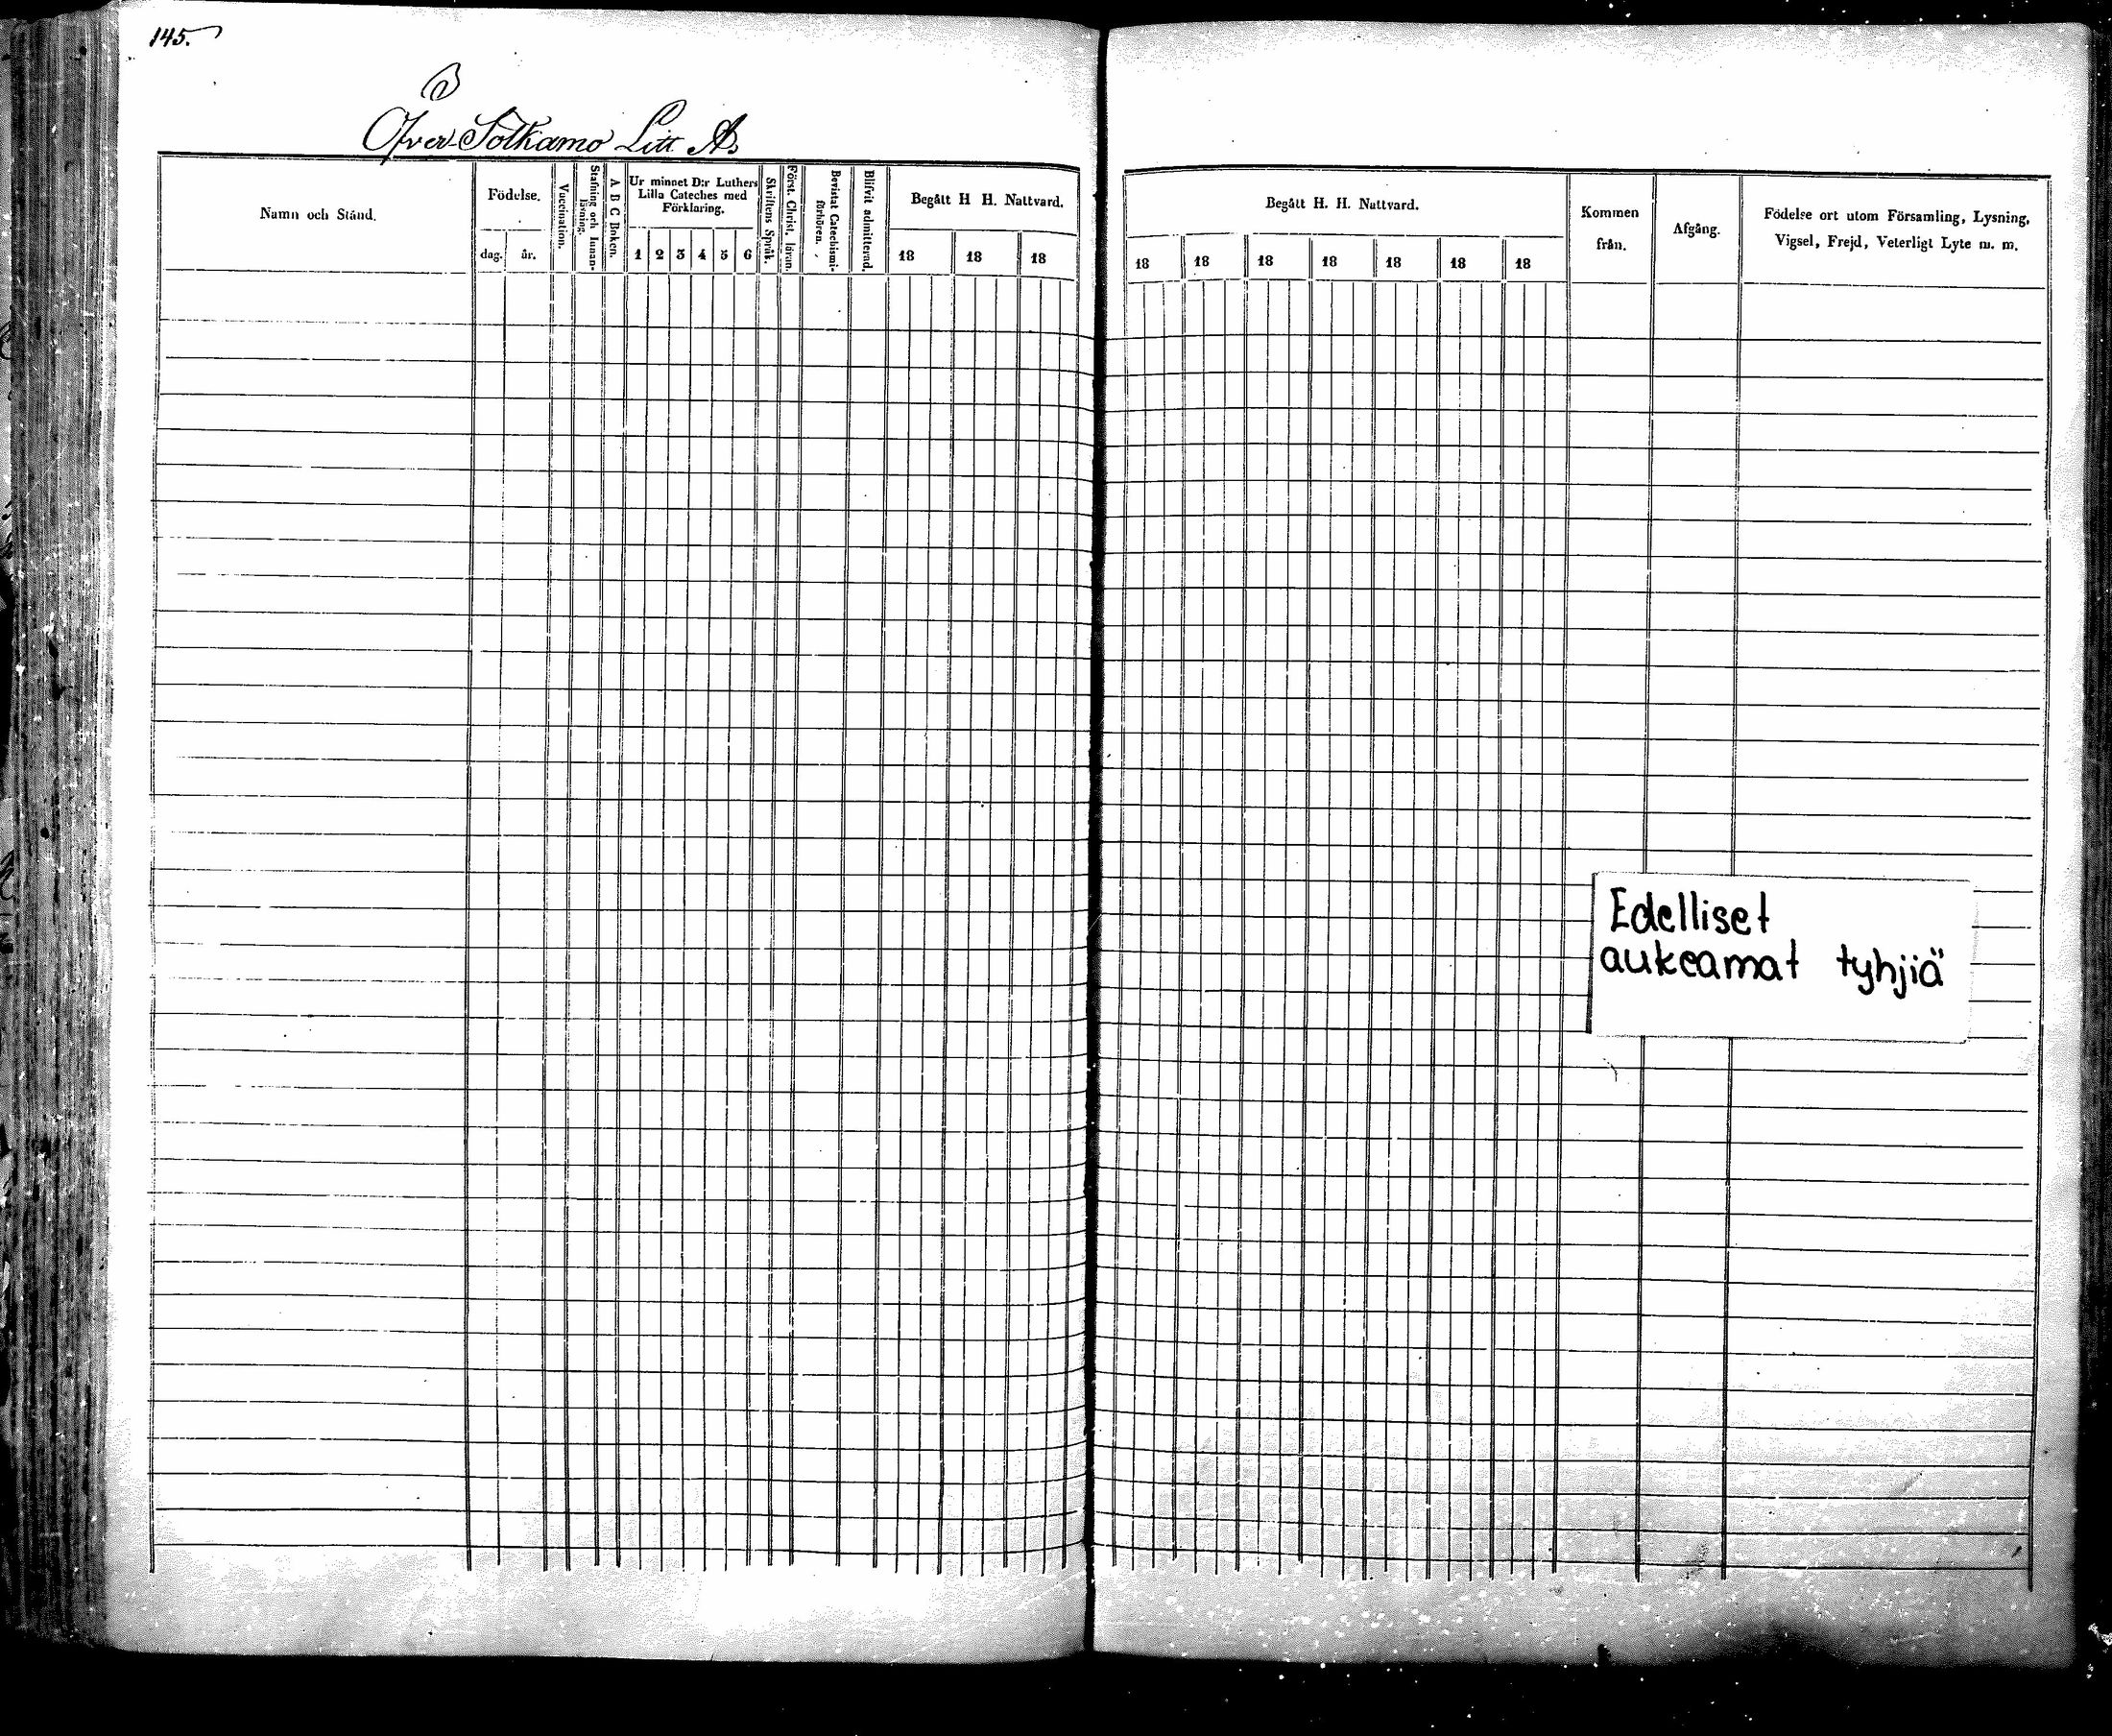 145.
B
Öfver Sotkamo Litt. A.
Namn och Stånd.
Födelse.
dag.
år.
Vaccination.
Stafning och Innan-
läsning.
A B C Boken.
Ur minnet D:r Luthers
Lilla Cateches med
Förklaring.
1 2 3 4 5 6
Skriftens Språk.
Först. Christ. läran.
Bevistat Catechismi-
förhören.
Blifvit admitterad.
Begått H H. Nattvard.
18 18 18
Begått H. H. Nattvard.
18 18 18 18 18 18 18
Kommen
från.
Afgång.
Födelse ort utom Församling, Lysning,
Vigsel, Frejd, Veterligt Lyte m. m.
Edelliset
aukeamat tyhjiä